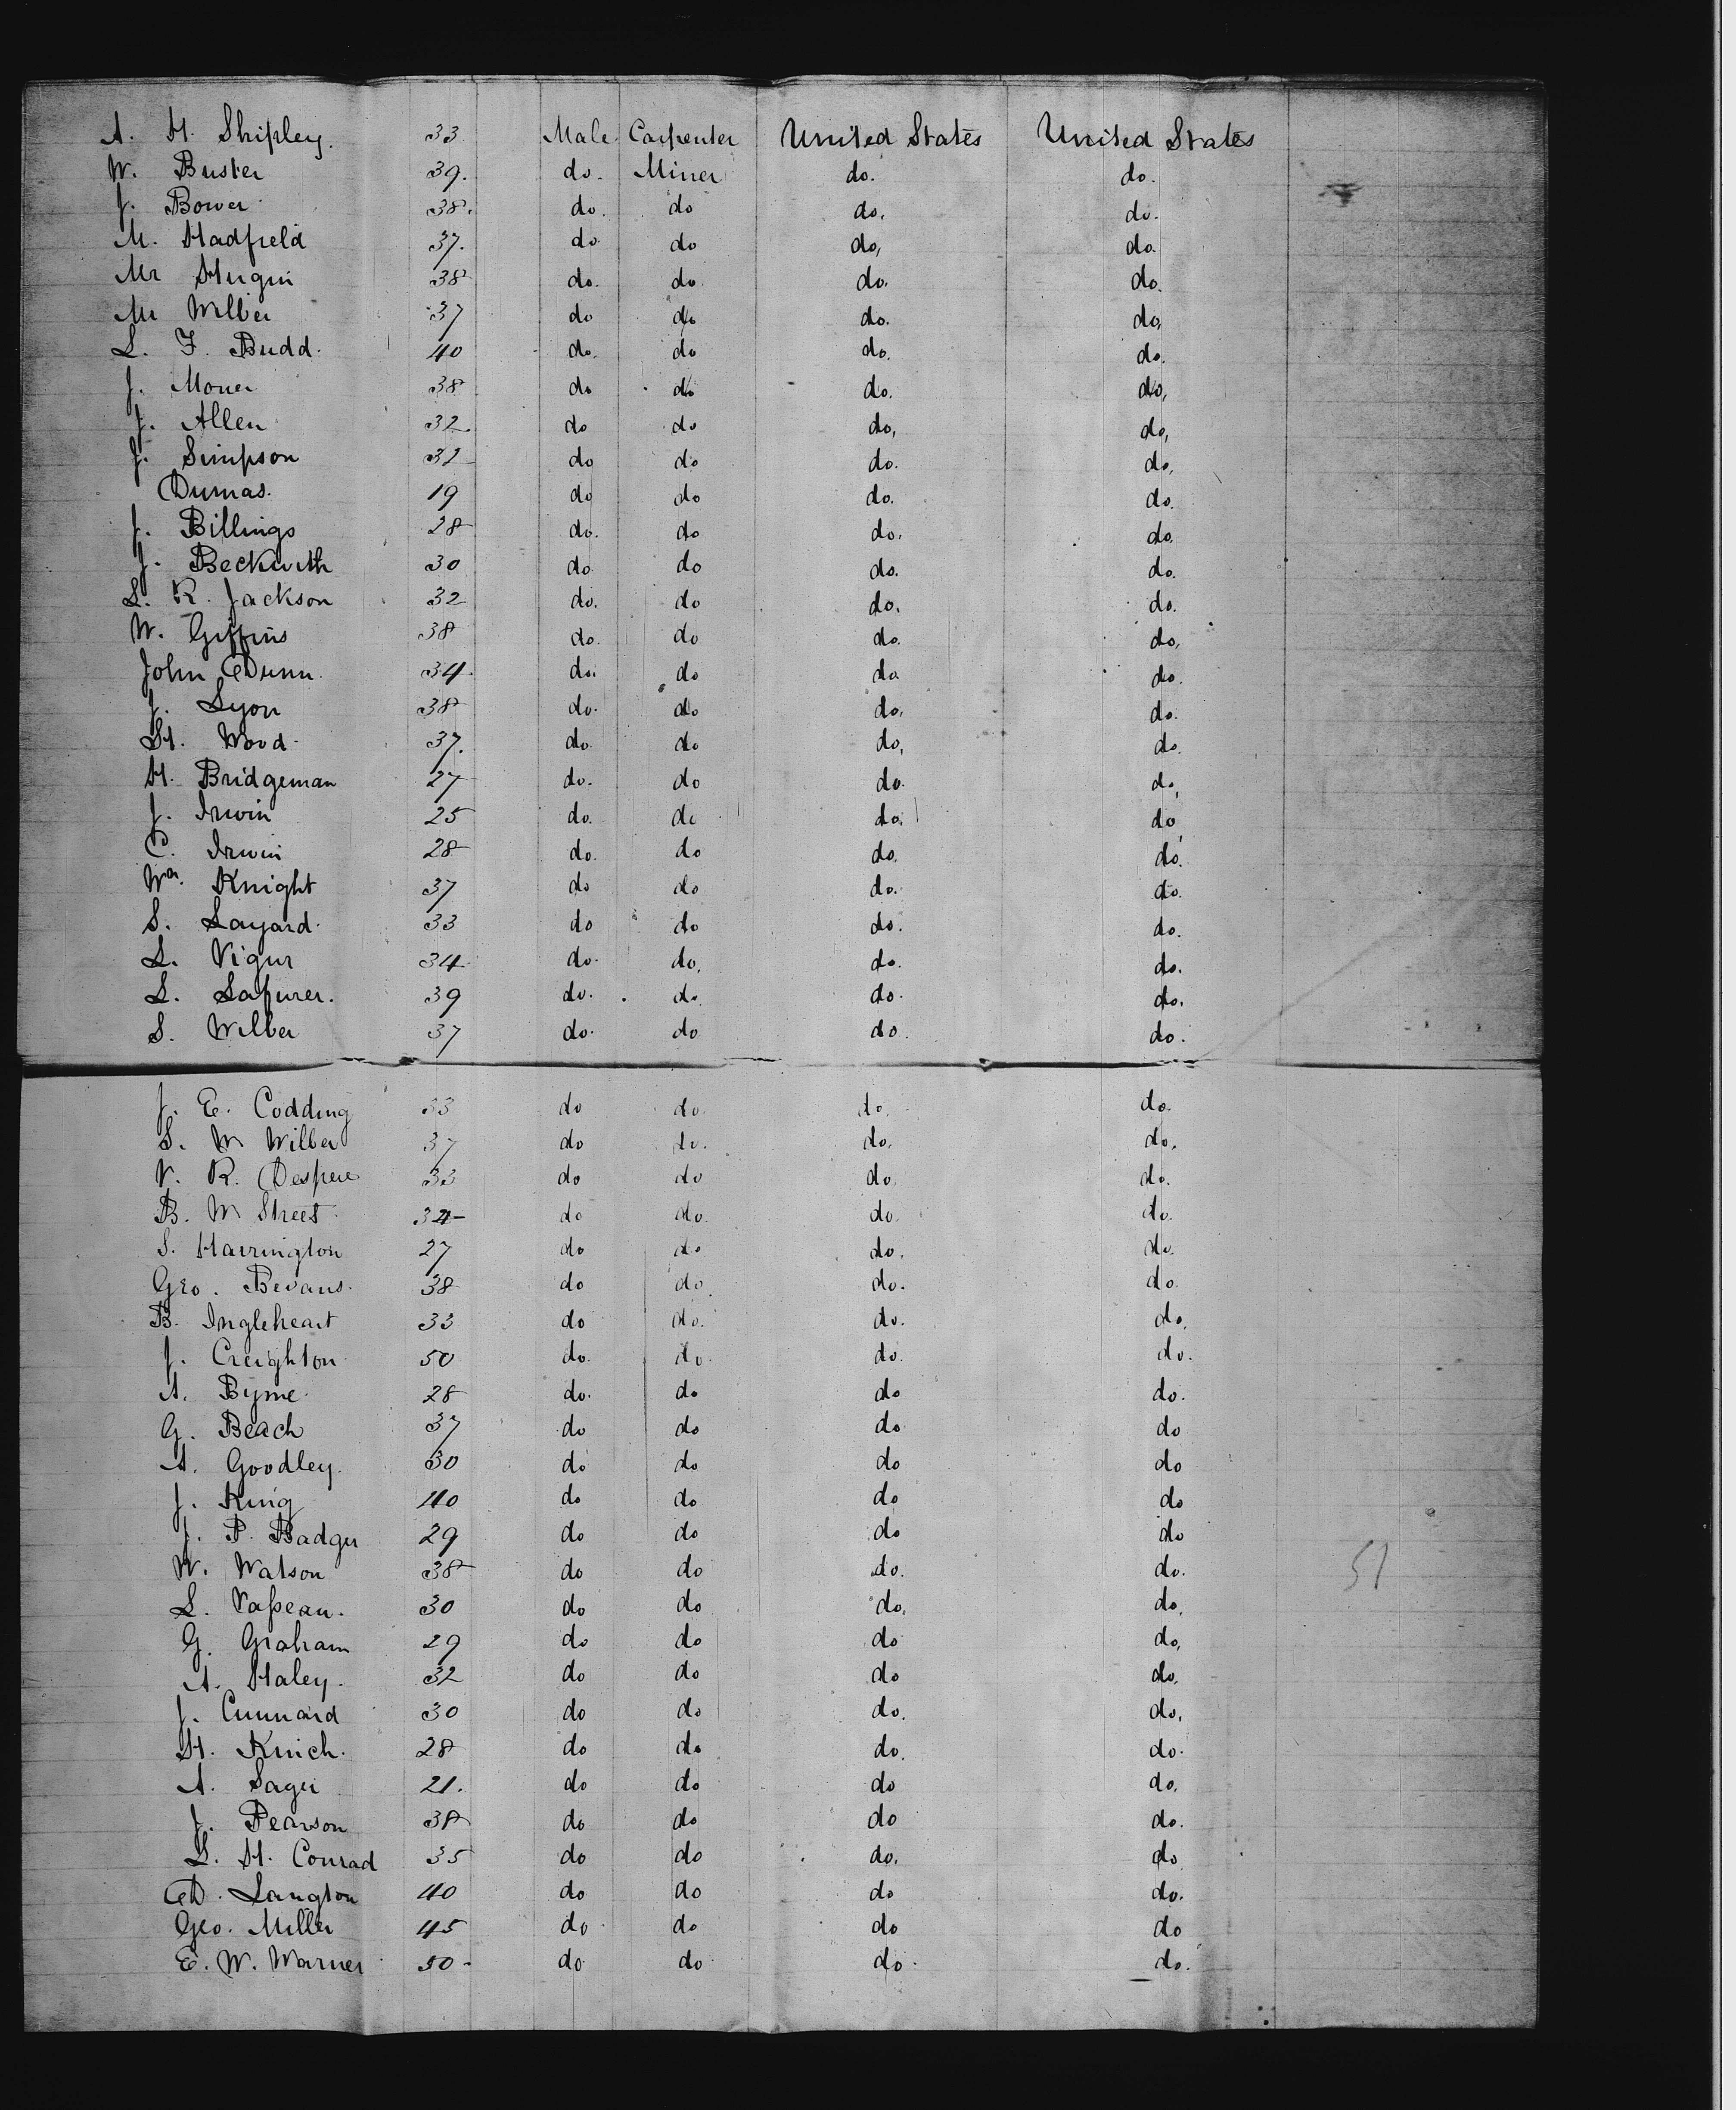 A. H. Shipley. 33 Male Carpenter United States United States
W. Buster 39. do. Miner do. do.
J. Bower 38. do. do do. do.
M. Hadfield 37. do. do do, do.
Mr 38 do. do do. do.
Mr Wilber 37 do do do. do,
L. F. Budd. 40 do. do do. do.
J. Mouer 38 do do do. do,
J. Allen 32. do do do, do,
J. Simpson 32 do do do. do,
Dumas. 19 do do do. do.
J. Billings 28 do. do do. do.
J. Beckwith 30 do do do. do.
L. R. Jackson 32 do. do do. do.
W. Giffins 38 do. do do. do,
John Dunn. 34. do. do do do.
J. Lyon 38 do. do do, do.
H. Wood. 37. do. do do, do.
H. Bridgeman 27 do. do do. do,
J. Irwin 25 do. do do. do,
C. Irwin 28 do. do do. do.
Wm. Knight 37 do do do. do.
S. Layard. 33 do do do. do.
L. Vigur 34. do. do, do. do.
L. 39 do. do. do. do.
S. Wilber 37 do. do do. do.
J. E. Codding 33 do do. do. do.
S. W Wilber 37 do do. do. do.
V. R. 33 do do do. do.
B. W Street. 34 do do. do. do.
S. Harrington 27 do do do. do.
Geo. Bevans. 38 do do. do. do.
B. Ingleheart 33 do do. do. do.
J. Creighton. 50 do. do. do. do.
A. Byrne. 28 do. do do do.
G. Beach 37 do do do do
A. Goodley. 30 do do do do
J. King 40 do do do do
J. P. Badger 29 do do do do
W. Watson 38 do do do. do.
L. 30 do do do. do.
G. Graham 29 do do do do,
A. Haley. 32 do do do do.
J. Cunnard 30 do do do. do.
H. Knich. 28 do do do. do.
A. Sager 21. do do do do.
J. Pearson 38 do do do do.
L. H. Conrad 35 do do do. do
D. Langton 40 do do do do.
Geo. Miller 45 do do do do
E. W. Warner 50 do. do. do. do.
51